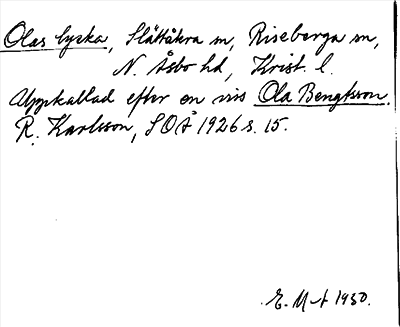 Olas lycka, Slättåkra m, Riseberga sn,
N. Åsbo hd, Krist. l.
Uppkallad efter en viss Ola Bengtsson.
R. Karlsson, SOÅ 1926 s. 15.
E. M-t 1930.